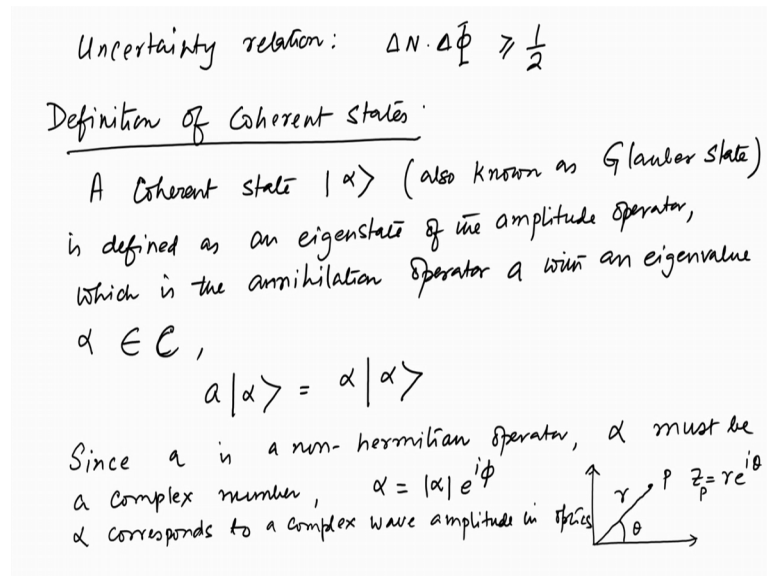 Uncertainty relation: ΔN.ΔΦ ⩾ 1/2
Definition of Coherent states.
A Coherent state |α> (also known as Glauber state)
is defined as an eigenstate of the amplitude operator,
which is the annihilation operator a with an eigenvalue
α ∈ C,
a|α> = α|α>
Since a is a non-hermitian operator, α must be
a complex number, α = |α| e^{iϕ}
r P z_p = re^{iθ}
α corresponds to a complex wave amplitude in optics
θ